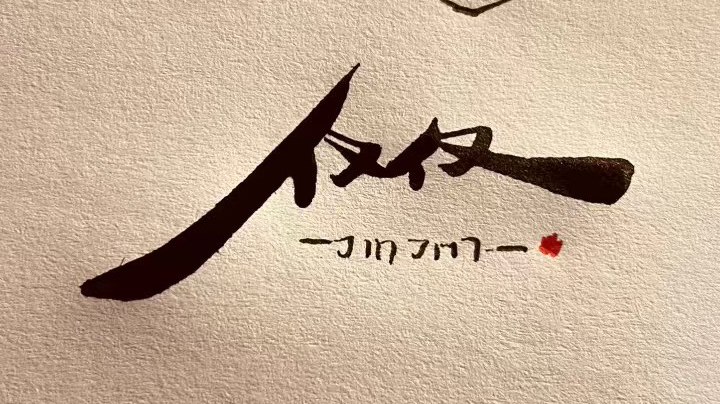 仅仅
-JIN JIN-